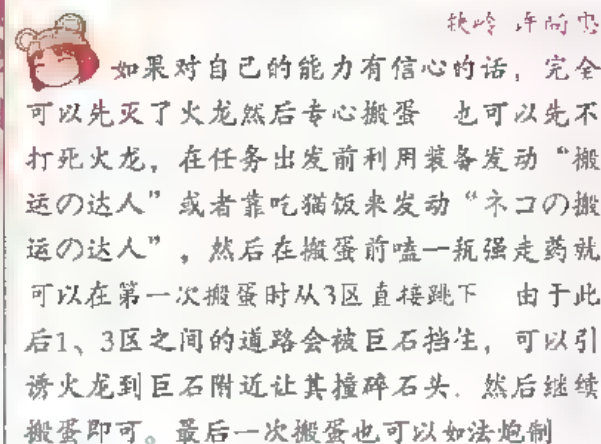 铁岭 许丽忠
如果对自己的能力有信心的话，完全
可以先灭了火龙然后专心搬蛋 也可以先不
打死火龙，在任务出发前利用装备发动“搬
运の达人”或者靠吃猫饭来发动“ネコの搬
运の达人”，然后在搬蛋前嗑一瓶强走药就
可以在第一次搬蛋时从3区直接跳下 由于此
后1、3区之间的道路会被巨石挡住，可以引
诱火龙到巨石附近让其撞碎石头．然后继续
搬蛋即可。最后一次搬蛋也可以如法炮制